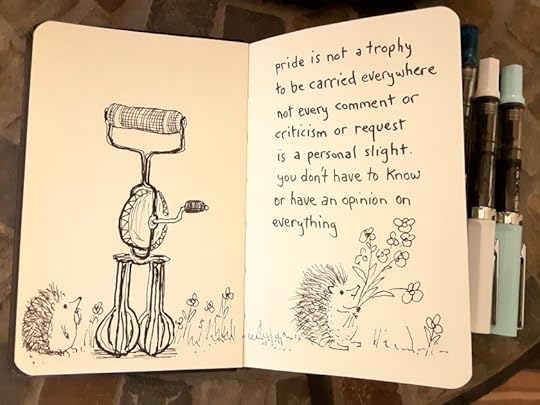 pride is not a trophy
to be carried everywhere
not every comment or
criticism or request
is a personal slight.
you don't have to know
or have an opinion on
everything